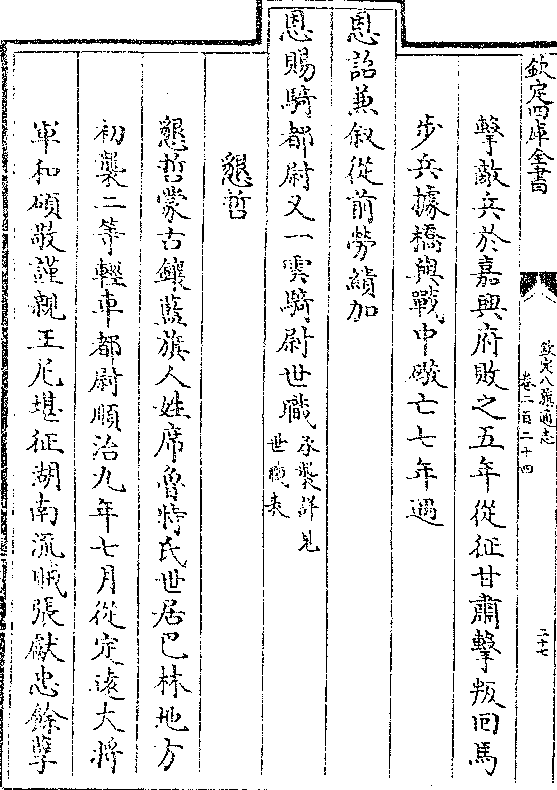 欽定四庫全書
欽定八旗通志
卷二百二十四
二十七
擊敵兵於嘉興府敗之五年從征甘肅擊叛回馬
步兵據橋與戰中礮亡七年遇
恩詔兼叙從前勞績加
恩賜騎都尉又一雲騎尉世職承襲詳見
世職表
懇哲
懇哲蒙古鑲藍旗人姓席魯特氏世居巴林地方
初襲二等輕車都尉順治九年七月從定遠大將
軍和碩敬謹親王尼堪征湖南流賊張獻忠餘孽